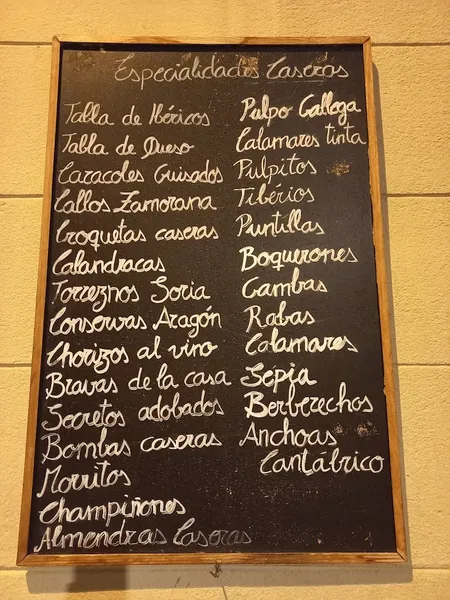 Especialidades Caseras
Talla de Ibéricos
Tabla de Queso
Caracoles Guisados
Callos Zamorana
Croquetas caseras
Calandracas
Torreznos Soria
Conservas Aragón
Chorizos al vino
Bravas de la casa
Secretos adobados
Bombas caseras
Morritos
Champiñones
Almendras Caseras
Pulpo Gallega
Calamares tinta
Pulpitos
Tibérios
Puntillas
Boquerones
Gambas
Rabas
Calamares
Sepia
Berberechos
Anchoas
Cantábrico